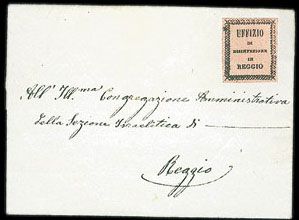 UFFIZIO
DI
DISINFEZIONE
IN
REGGIO
All' Ill.ma Congregazione Amministrativa
della Sezione Israelitica di
Reggio